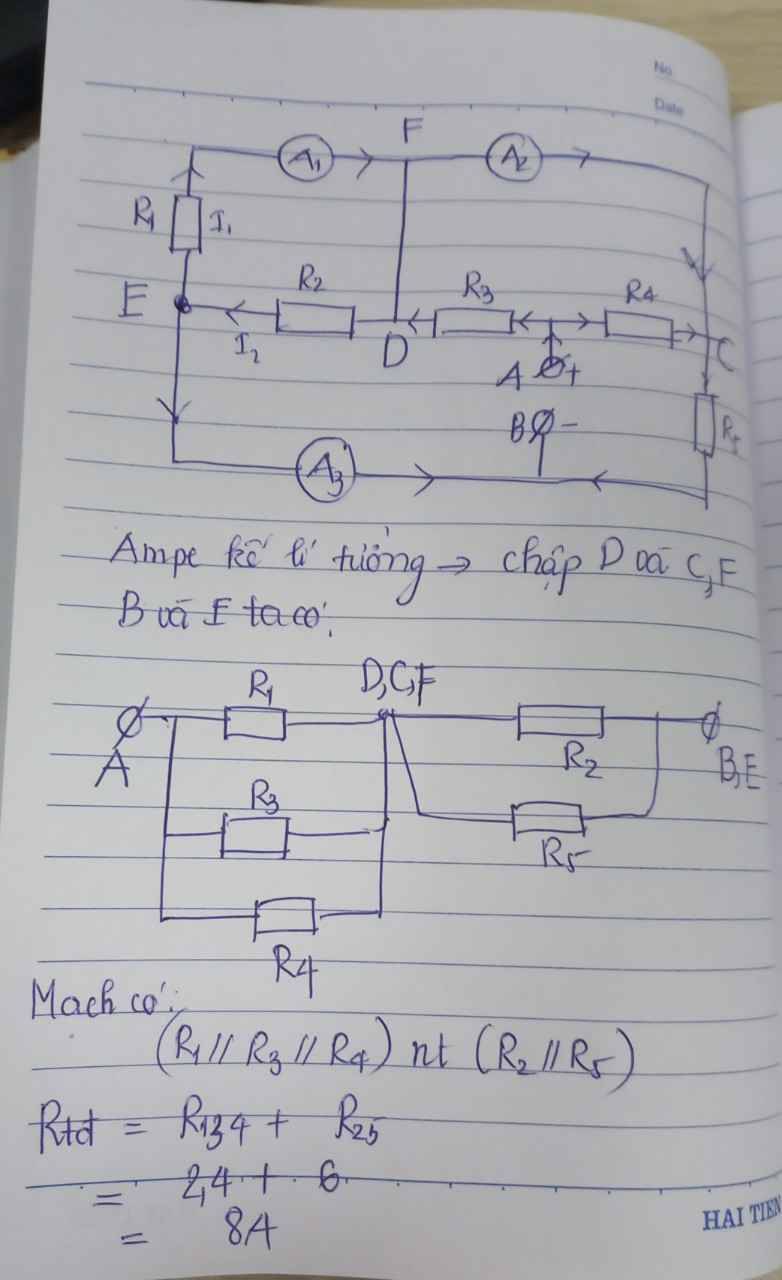 No.
Date
F
A1
A2
R1
I1
E
R2
R3
R4
I2
D
A +
C
B -
R5
A3
Ampe kế lí tưởng → chập D và C, F
B và E ta có:
R1
D,C,F
A
R2
B,E
R3
R5
R4
Mạch có:
(R1 // R3 // R4) nt (R2 // R5)
Rtđ = R134 + R25
= 2,4 + 6
= 8,4
HAI TIEN